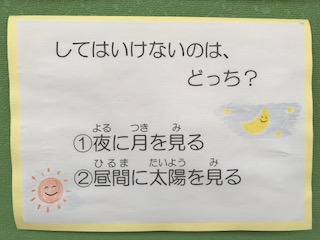 してはいけないのは、
どっち？
よる つき み
①夜に月を見る
ひるま たいよう み
②昼間に太陽を見る